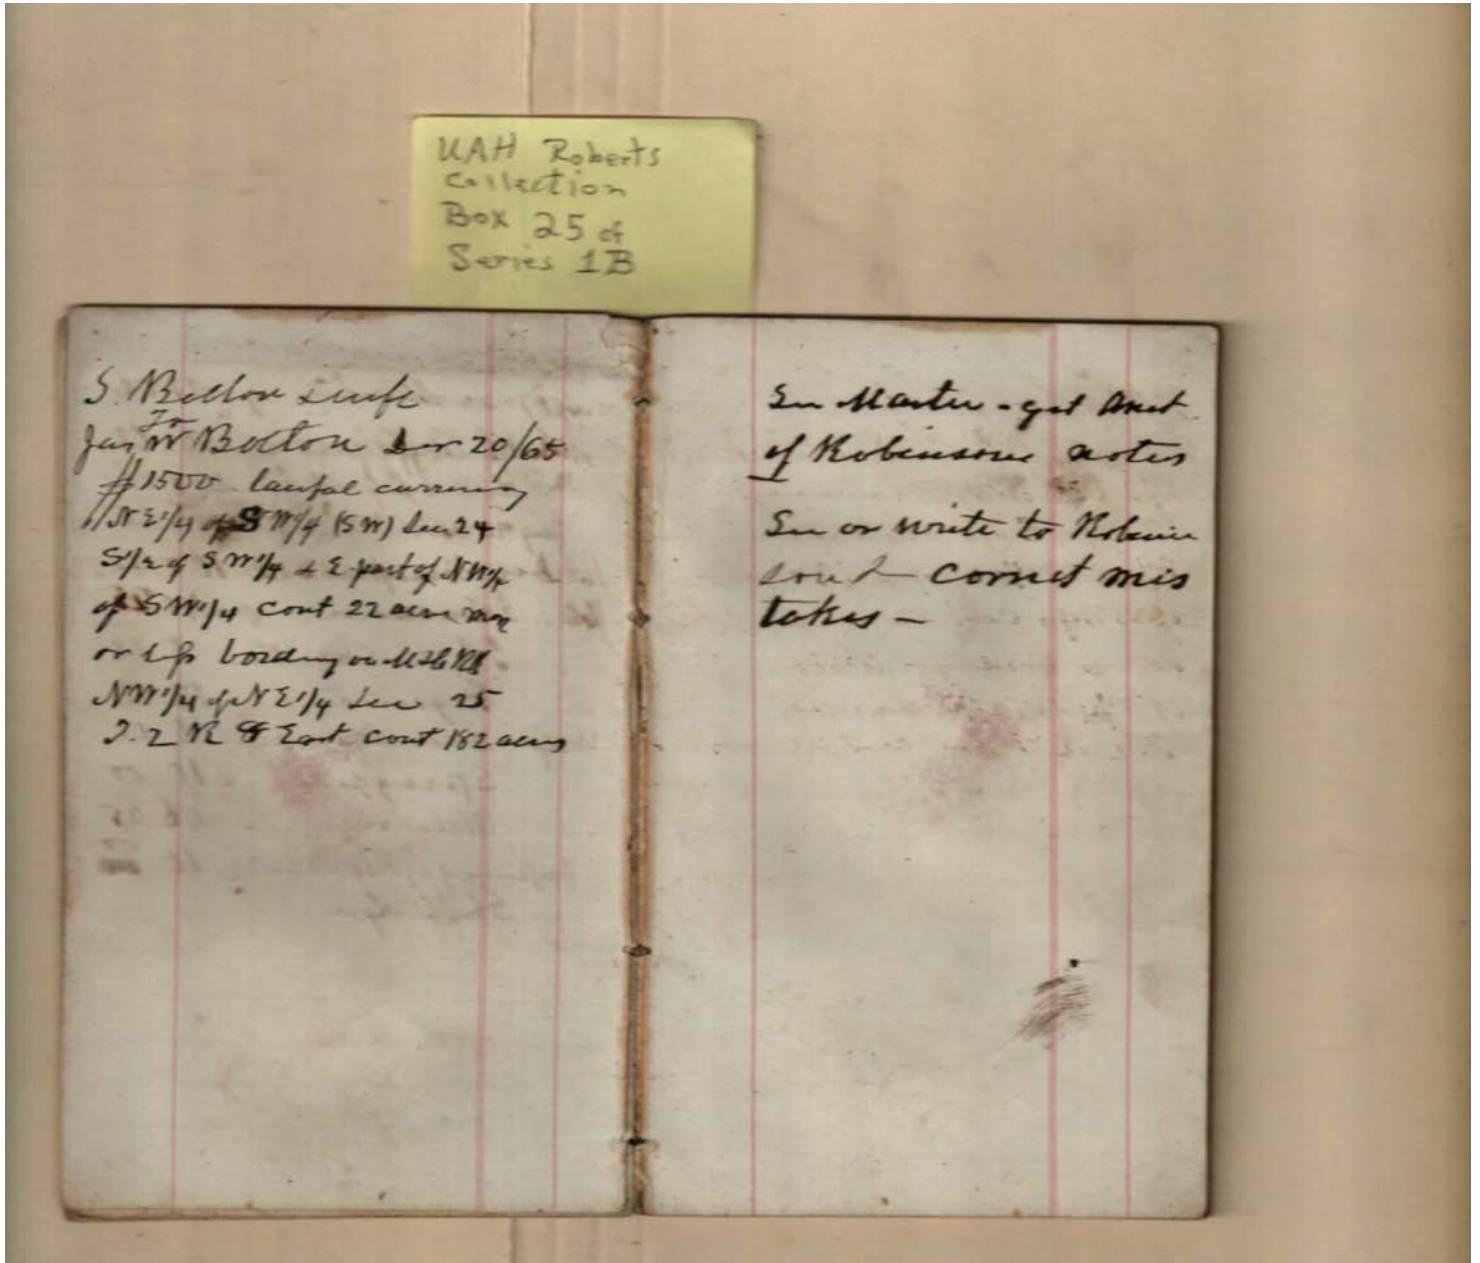 UAH Roberts
Collection
Box 25 of
Series 1B
S. Bolton & wife
To
Jas W Bolton Dec 20/65
$1500 lawful currency
NE 1/4 of SW 1/4 (SW) Sec 24
S 1/2 of SW 1/4 & E part of NW 1/4
of SW 1/4 cont 22 acres more
or less bording on M & C RR
NW 1/4 of NE 1/4 Sec 25
T. 2 R 8 East cont 182 acres
See Martin - get Amt
of Robinsons notes
See or write to Robin
son & correct mis
takes -